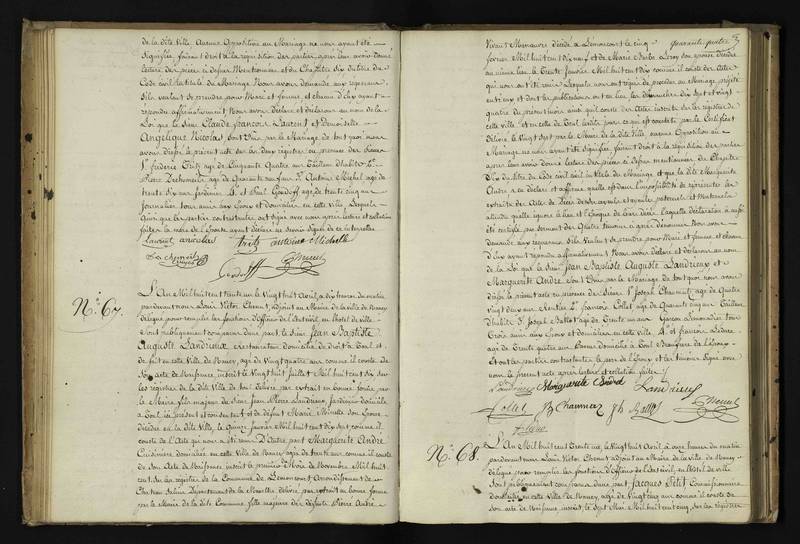 de la dite Ville, Aucune Opposition au Mariage ne nous ayant été
signifiée, faisant droit à la réquisition des parties, après leur avoir donné
lecture des pièces ci dessus Mentionnées et du Chapitre Six du titre du
Code civil intitulé du Mariage Nous avons demandé aux requérans
S'ils veulent se prendre pour Mari et femme, et chacun d'eux ayant
répondu affirmativement Nous avons déclaré et déclarons au nom de la
Loi que le Sieur Claude François Laurent et Demoiselle
Angélique Nicolas Sont Unis par le Mariage de tout quoi nous
avons dressé le présent acte sur les deux registres en présence des Sieurs
1er Frédéric Fritz agé de Cinquante Quatre ans Tailleur d'habits 2e
Pierre agé de Quarante neuf ans 3e Antoine Michel agé de
trente six ans Jardinier 4e et Paul Goudoff agé de trente cinq ans
Journalier tous amis des Epoux et domiciliés en cette Ville, Lesquels
ainsi que les parties contractantes ont signé avec nous après lecture et collation
faites, la mère de l'épouse ayant déclaré ne savoir signer de ce interpellée
Laurent angelique fritz antoine Michelle
Goudoff Chenut
No. 67.
L'An Mil huit cent trente un le Vingt huit Avril, à dix heures du matin
pardevant nous Louis Victor Chenut, adjoint au Maire de la Ville de Nancy
délégué pour remplir les fonctions d'officier de l'état civil, en l'hôtel de ville
Sont publiquement comparus d'une part, le Sieur Jean Baptiste
Auguste Landrieux, Restaurateur domicilié de droit à Toul et
de fait en cette Ville de Nancy, agé de Vingt quatre ans comme il conste de
son acte de Naissance inscrit le Vingt huit Juillet Mil huit cent six sur
les registres de la dite Ville de Toul, délivré par extrait en bonne forme par
le Maire, fils majeur de Sieur Jean Pierre Landrieux, Jardinier domicilié
à Toul, ici présent et consentant et de défunte Marie Minette son Epouse,
décédée en la dite Ville, le Quinze Janvier Mil huit cent dix sept comme il
conste de l'Acte qui nous a été remis D'Autre part Marguerite André
Cuisinière domiciliée en cette Ville de Nancy agée de trente ans comme il conste
de son Acte de Naissance inscrit le premier Mois de Novembre Mil huit
cent, Sur les registres de la Commune de Lemoncourt Arrondissement de
Chateau Salins, Département de la Meurthe, délivré par extrait en bonne forme
par le Maire de la dite Commune fille majeure de défunts Pierre André
quarante quatre
Vivant Manœuvre décédé à Lemoncourt le cinq
février Mil huit cent dix neuf et de Marie Barbe Leroy son épouse, décédée
au même lieu le trente Janvier Mil huit cent dix comme il conste des Actes
qui nous ont été remis Lesquels nous ont requis de procéder au Mariage projeté
entr'eux et dont les publications ont eu lieu les dimanches dix sept et vingt
quatre du présent mois ainsi qu'il conste des Actes inscrits sur les registres de
cette Ville et en celle de Toul le dit jour ce qui est constaté par le Certificat
délivré le Vingt Sept par le Maire de la dite Ville, aucune Opposition au
Mariage ne nous ayant été signifiée, faisant droit à la réquisition des parties
après leur avoir donné lecture des pièces ci dessus mentionnées du Chapitre
Six du titre du Code civil intitulé du Mariage et que la dite Marguerite
André a ce déclaré et affirmé qu'elle est dans l'impossibilité de représenter les
extraits des Actes de Décès de ses ayeuls et ayeules, paternels et Maternels
attendu qu'elle ignore le lieu et l'époque de leur décès laquelle déclaration a aussi
été certifiée par serment des Quatre témoins ci après dénommés Nous avons
demandé aux requérans S'ils Veulent se prendre pour Mari et femme et chacun
d'eux ayant répondu affirmativement Nous avons déclaré et déclarons au nom
de la Loi que le Sieur Jean Baptiste Auguste Landrieux et
Marguerite André Sont Unis par le Mariage de tout quoi nous avons
dressé le présent acte en présence des Sieurs 1er Joseph agé de Quarante
Vingt deux ans Rentier 2e François Collet agé de Quarante cinq ans Tailleur
d'habits 3e Joseph agé de Trente un ans Garçon Limonadier tous
Trois amis des Epoux et domiciliés en cette Ville 4e et François
agé de Trente quatre ans domicilié à Toul Beaufrère de l'époux
Et ont les parties contractantes le père de l'époux et les témoins signé avec
nous le présent acte après lecture et collation faites
Landrieux Marguerite André Landrieux
Collet Chenut
No. 68.
L'An Mil huit cent Trente un, le Vingt huit Avril à onze heures du matin
pardevant nous Louis Victor Chenut adjoint au Maire de la Ville de Nancy
délégué pour remplir les fonctions d'Officier de l'état civil, en l'hôtel de ville
Sont publiquement comparus d'une part, Jacques Petit Commissionnaire
domicilié en cette Ville de Nancy, agé de Vingt cinq ans comme il conste de
son acte de Naissance inscrit, le Sept Mai Mil huit cent cinq sur les registres